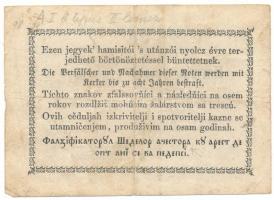 Ezen jegyek' hamisitói 's utánzói nyolcz évre ter-
jedhető börtönöztetéssel büntettetnek.
Die Verfälscher und Nachahmer dieser Noten werden mit
Kerker bis zu acht Jahren bestraft.
Tíchto znakov zfalssorňíci a následňíci na osem
rokov rozdlžiť mohúcim žalárstvom sa trescú.
Ovih ceduljah izkrivitelji i spotvoritelji kazne se
utamničenjem, produživim na osam godinah.
Фалсіфікаторꙋл Шеделор ачестора кꙋ арест де
опт анї се ва педепсі.